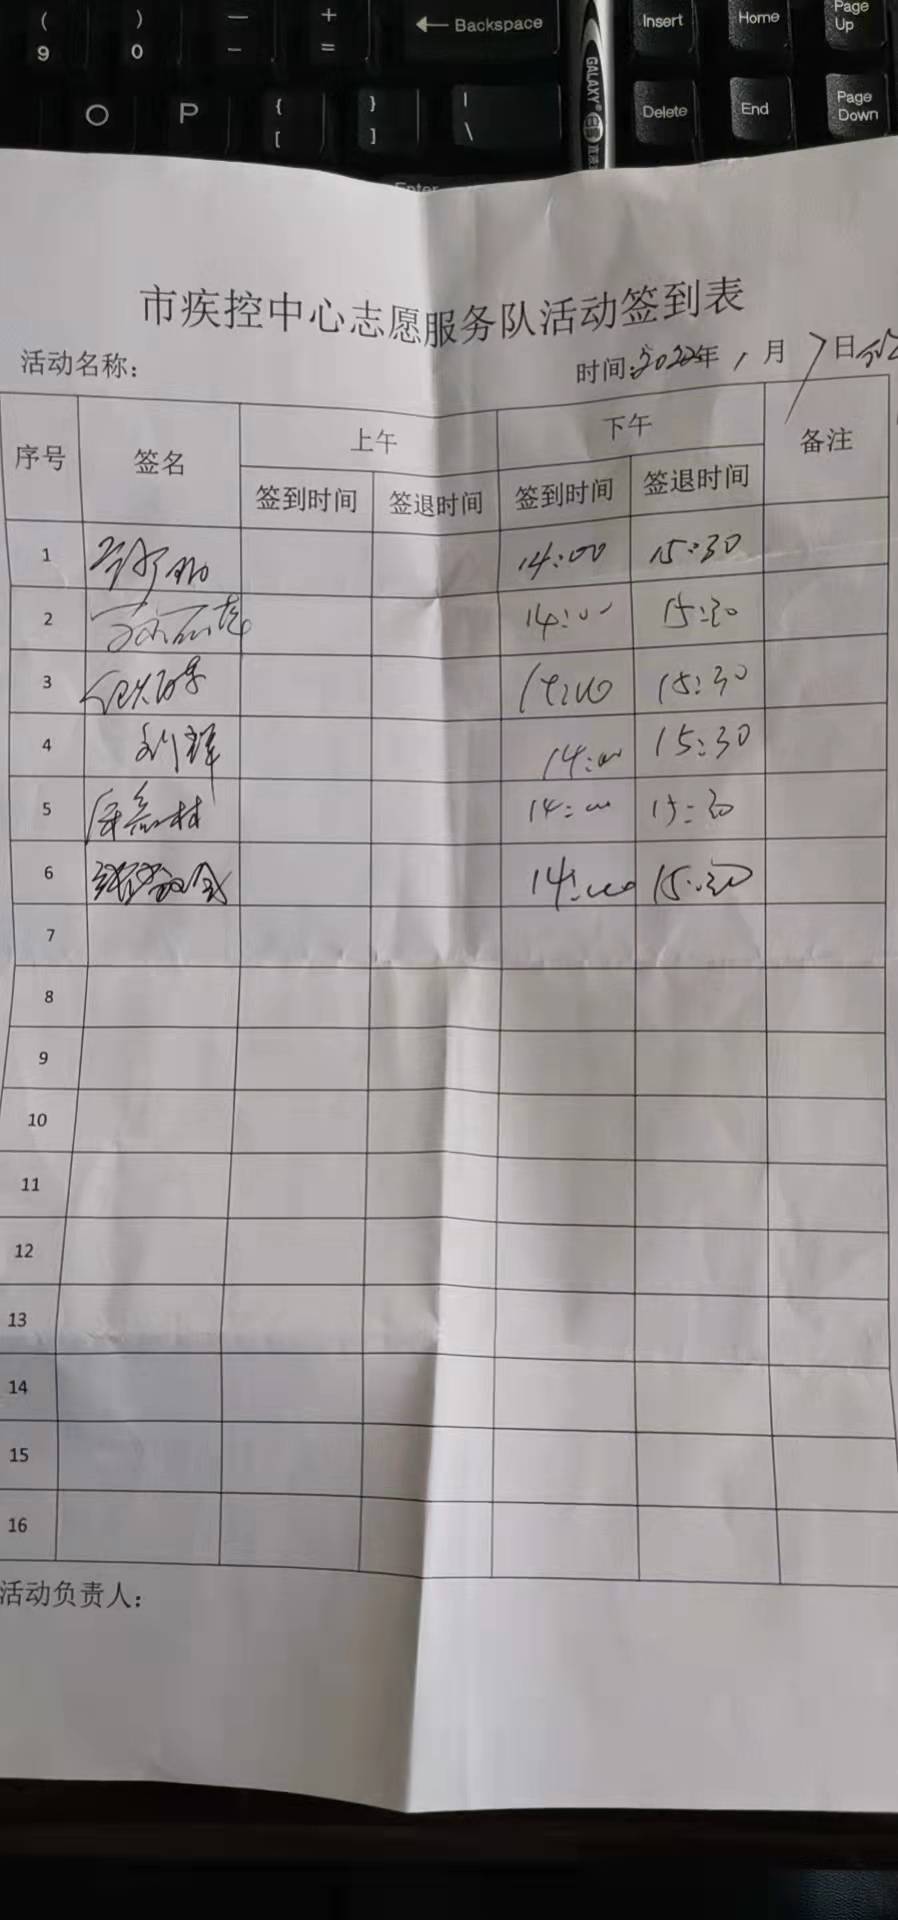 ( ) — + ← Backspace Insert Home Page Up
9 0 - =
O P { } | Delete End Page Down
[ ] \
GALAXY
Enter
市疾控中心志愿服务队活动签到表
活动名称: 时间:2022年1月7日
序号 签名 上午 下午 备注
签到时间 签退时间 签到时间 签退时间
1 14:00 15:30
2 14:00 15:30
3 14:00 15:30
4 刘辉 14:00 15:30
5 14:00 15:30
6 14:00 15:30
7
8
9
10
11
12
13
14
15
16
活动负责人: